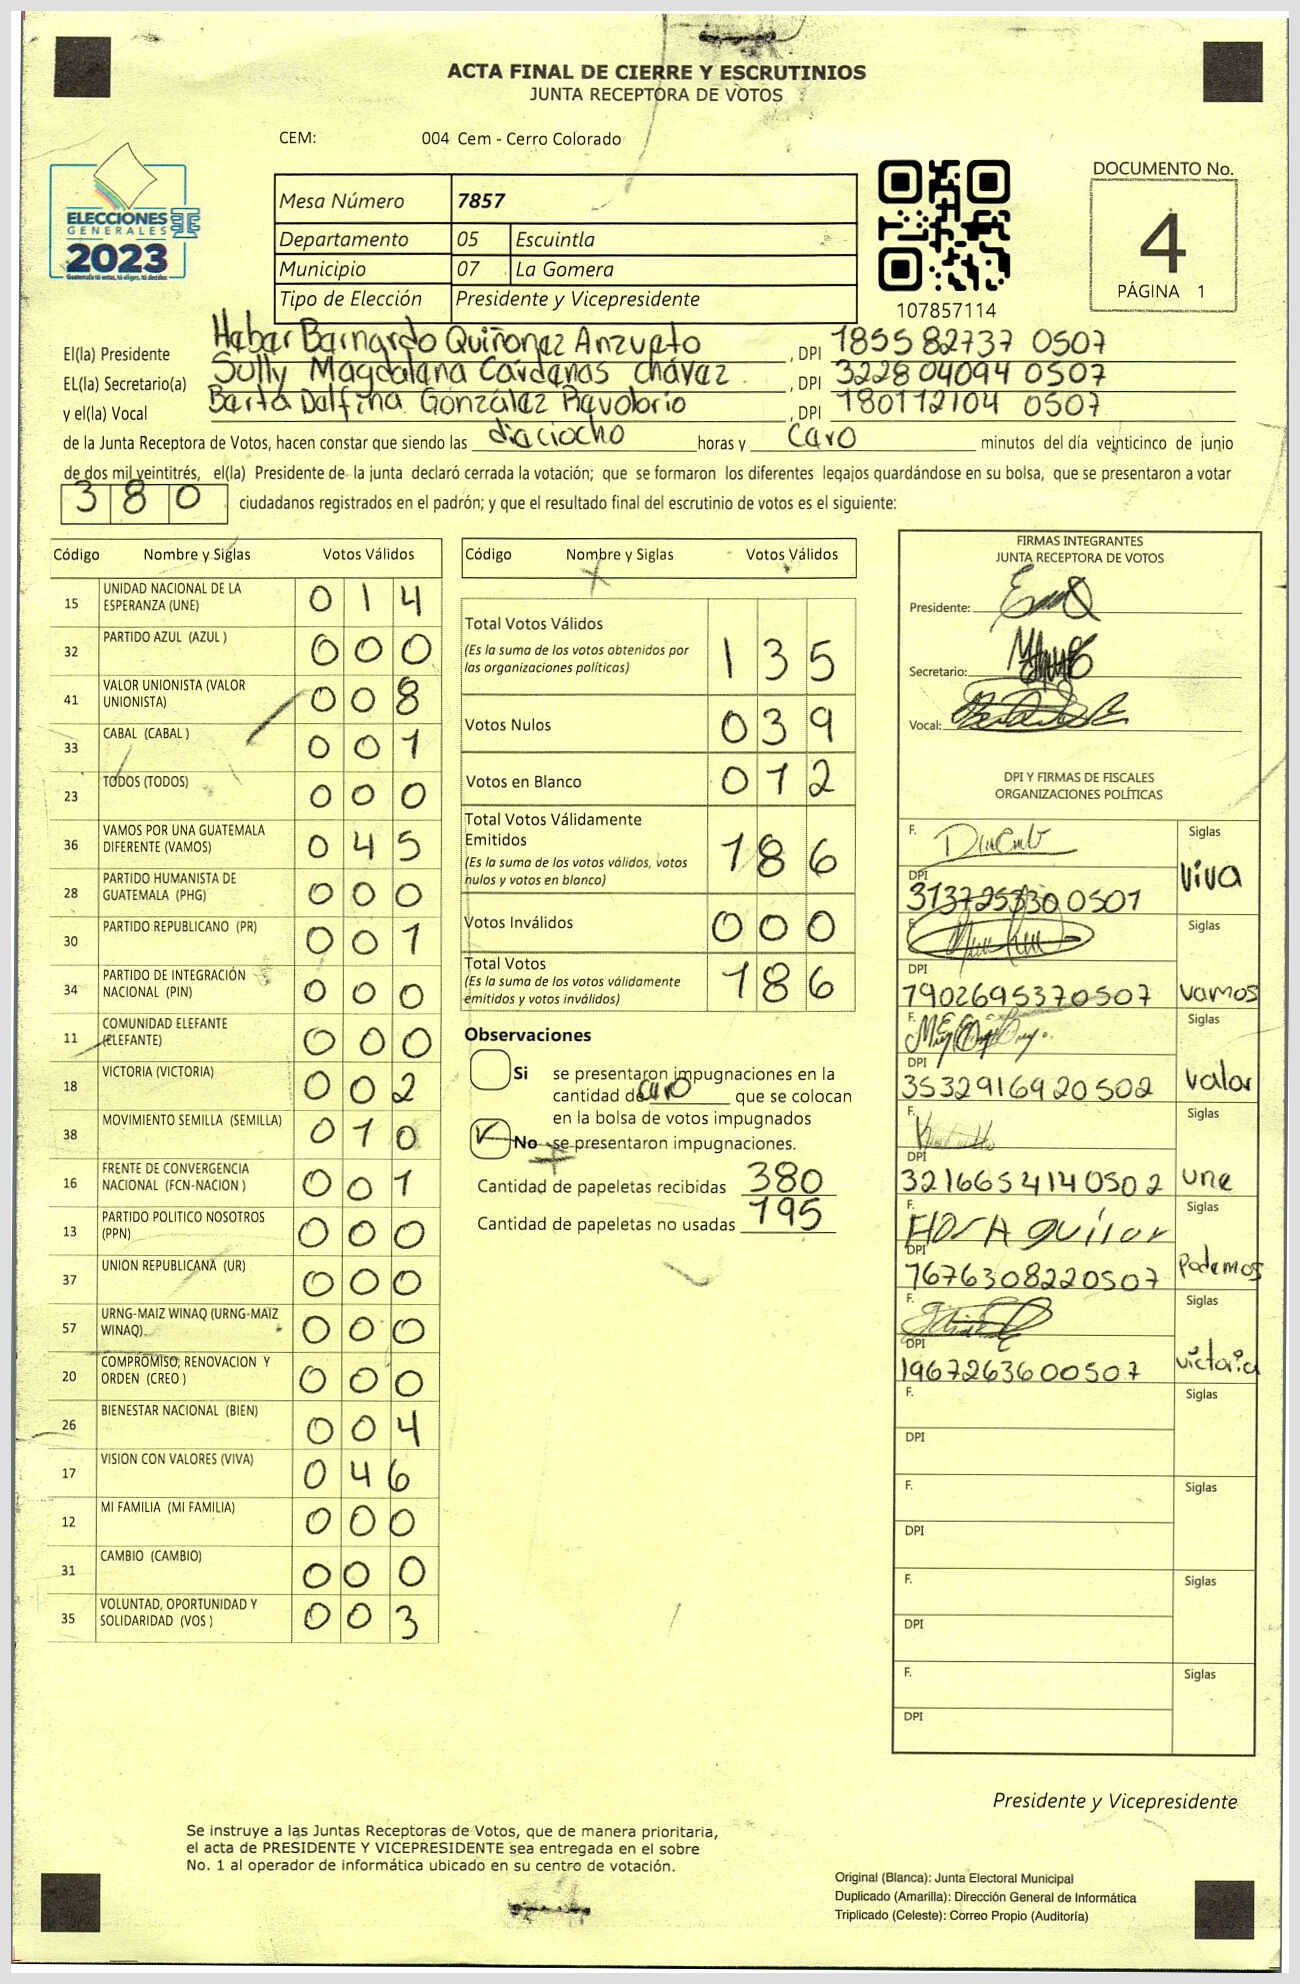 ACTA FINAL DE CIERRE Y ESCRUTINIOS
JUNTA RECEPTORA DE VOTOS
CEM: 004 Cem - Cerro Colorado
ELECCIONES
GENERALES
2023
Mesa Número 7857
Departamento 05 Escuintla
Municipio 07 La Gomera
Tipo de Elección Presidente y Vicepresidente
107857114
DOCUMENTO No.
4
PÁGINA 1
El(la) Presidente Habar Barnardo Quiñonaz Anzuato , DPI 1855 82737 0507
EL(la) Secretario(a) Sully Magdalana Cárdanas chávaz , DPI 322804094 0507
y el(la) Vocal Barta Dalfina González , DPI 180112104 0507
de la Junta Receptora de Votos, hacen constar que siendo las diaciocho horas y caro minutos del día veinticinco de junio
de dos mil veintitrés, el(la) Presidente de la junta declaró cerrada la votación; que se formaron los diferentes legajos guardándose en su bolsa, que se presentaron a votar
380 ciudadanos registrados en el padrón; y que el resultado final del escrutinio de votos es el siguiente:
Código Nombre y Siglas Votos Válidos
15 UNIDAD NACIONAL DE LA ESPERANZA (UNE) 014
32 PARTIDO AZUL (AZUL ) 000
41 VALOR UNIONISTA (VALOR UNIONISTA) 008
33 CABAL (CABAL ) 001
23 TODOS (TODOS) 000
36 VAMOS POR UNA GUATEMALA DIFERENTE (VAMOS) 045
28 PARTIDO HUMANISTA DE GUATEMALA (PHG) 000
30 PARTIDO REPUBLICANO (PR) 001
34 PARTIDO DE INTEGRACIÓN NACIONAL (PIN) 000
11 COMUNIDAD ELEFANTE (ELEFANTE) 000
18 VICTORIA (VICTORIA) 002
38 MOVIMIENTO SEMILLA (SEMILLA) 010
16 FRENTE DE CONVERGENCIA NACIONAL (FCN-NACION ) 001
13 PARTIDO POLITICO NOSOTROS (PPN) 000
37 UNION REPUBLICANA (UR) 000
57 URNG-MAIZ WINAQ (URNG-MAIZ WINAQ) 000
20 COMPROMISO, RENOVACION Y ORDEN (CREO ) 000
26 BIENESTAR NACIONAL (BIEN) 004
17 VISION CON VALORES (VIVA) 046
12 MI FAMILIA (MI FAMILIA) 000
31 CAMBIO (CAMBIO) 000
35 VOLUNTAD, OPORTUNIDAD Y SOLIDARIDAD (VOS ) 003
Código Nombre y Siglas Votos Válidos
Total Votos Válidos
(Es la suma de los votos obtenidos por
las organizaciones políticas) 135
Votos Nulos 039
Votos en Blanco 012
Total Votos Válidamente
Emitidos
(Es la suma de los votos válidos, votos
nulos y votos en blanco) 186
Votos Inválidos 000
Total Votos
(Es la suma de los votos válidamente
emitidos y votos inválidos) 186
Observaciones
Si se presentaron impugnaciones en la
cantidad de caro que se colocan
en la bolsa de votos impugnados
No se presentaron impugnaciones.
Cantidad de papeletas recibidas 380
Cantidad de papeletas no usadas 195
FIRMAS INTEGRANTES
JUNTA RECEPTORA DE VOTOS
Presidente:
Secretario:
Vocal:
DPI Y FIRMAS DE FISCALES
ORGANIZACIONES POLÍTICAS
F. Siglas
DPI viva
0501
F. Siglas
DPI
1902695370507 vamos
F. Siglas
DPI
3532916920502 valor
F. Siglas
DPI
3216654140502 une
F. Flor Aguilar Siglas
DPI
1676308220507 podemos
F. Siglas
DPI
1967263600507 victoria
F. Siglas
DPI
F. Siglas
DPI
F. Siglas
DPI
F. Siglas
DPI
Presidente y Vicepresidente
Se instruye a las Juntas Receptoras de Votos, que de manera prioritaria,
el acta de PRESIDENTE Y VICEPRESIDENTE sea entregada en el sobre
No. 1 al operador de informática ubicado en su centro de votación.
Original (Blanca): Junta Electoral Municipal
Duplicado (Amarilla): Dirección General de Informática
Triplicado (Celeste): Correo Propio (Auditoría)